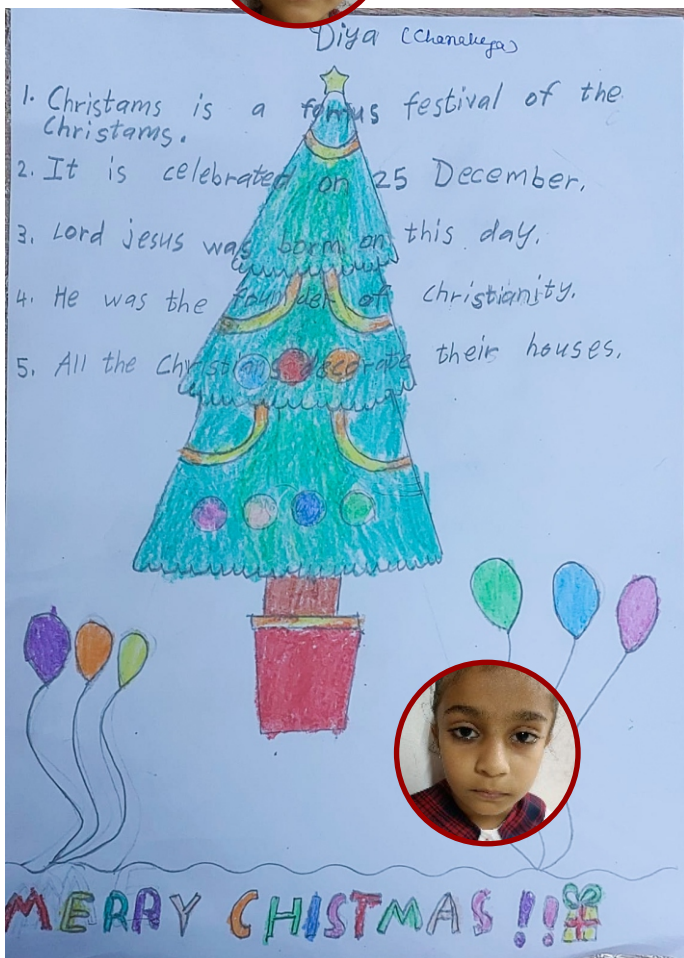 Diya (Chanakya)
1. Christams is a famus festival of the
Christams.
2. It is celebrated on 25 December.
3. Lord jesus was borm on this day.
4. He was the founder of christianity.
5. All the Christians decorate their houses.
MERRY CHISTMAS !!